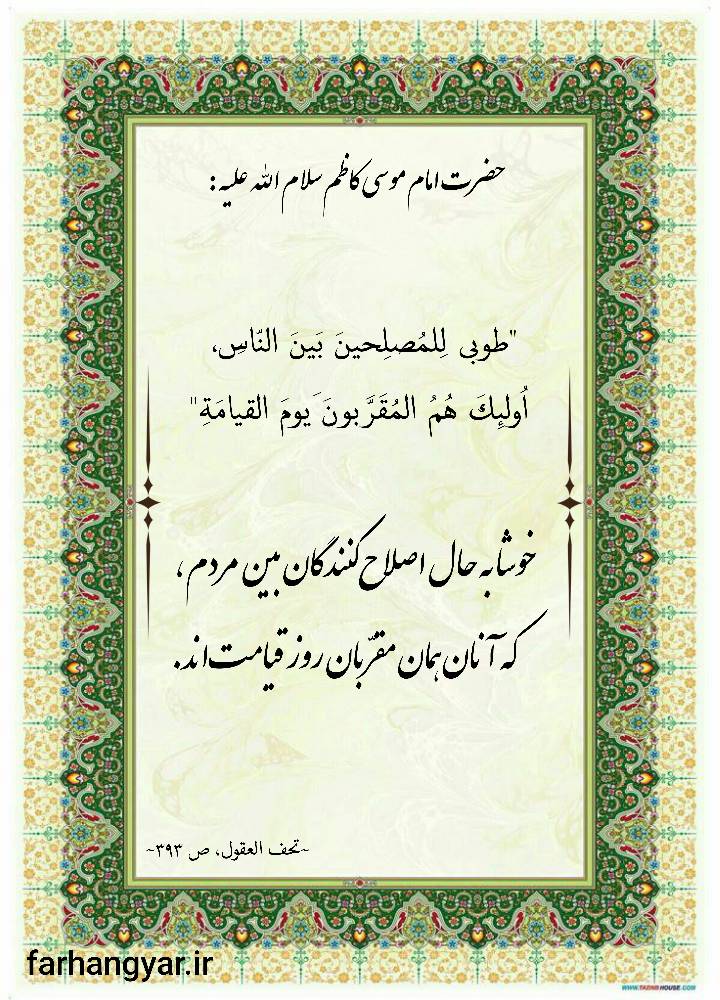 حضرت امام موسی کاظم سلام الله علیه :
"طوبی لِلمُصلِحینَ بَینَ النّاسِ،
اُولئِكَ هُمُ المُقَرَّبونَ َیومَ القیامَةِ"
خوشا به حال اصلاح کنندگان بین مردم ،
که آنان همان مقرّبان روز قیامت‌اند.
~تحف العقول، ص ۳۹۳~
farhangyar.ir
WWW.TAZHIBHOUSE.COM